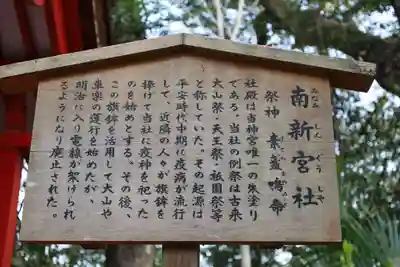 南新宮社
みなみしんぐうしゃ
祭神 素盞鳴命
社殿は当神宮唯一の朱塗り
である。当社の例祭は古来
大山祭・天王祭・祇園祭等
と称していた。その起源は
平安時代中期に疫病が流行
して、近隣の人々が旗鉾を
捧げて当社に疫神を祀った
のを始めとする。その後、
この旗鉾を活用して大山や
車楽の運行を始めたが、
明治に入り電線が架けられ
るようになり廃止された。